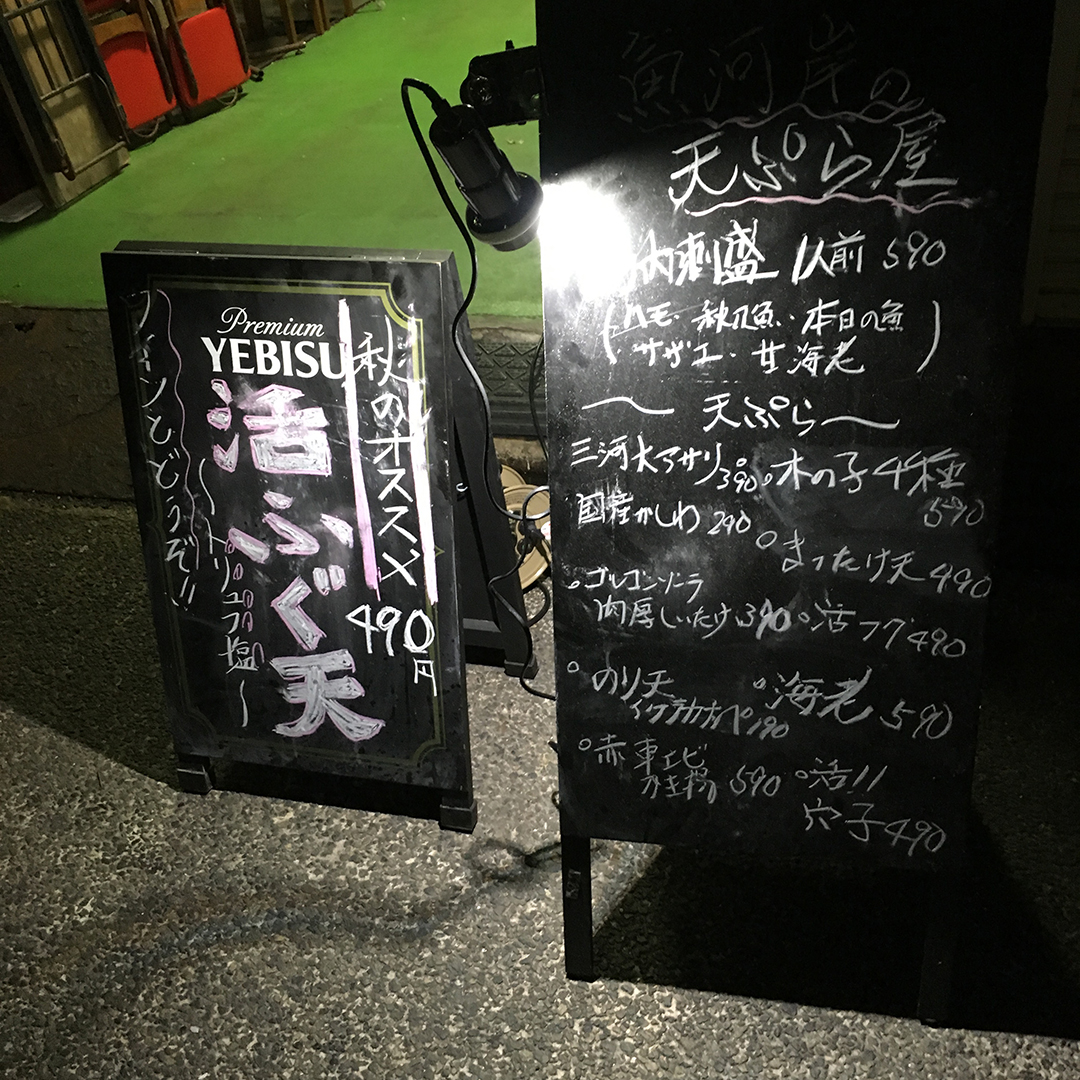 Premium
YEBISU
秋のオススメ
活ふぐ天
490円
〜トリュフ塩〜
ワインとどうぞ!!
魚河岸の
天ぷら屋
刺盛 1人前 590
(ハモ・秋刀魚・本日の魚
・サザエ・甘海老)
〜天ぷら〜
三河大アサリ 390
国産かしわ 290
。ゴルゴンゾーラ
肉厚しいたけ 390
。のり天
190
。赤車エビ
590
。木の子4種
590
。まつたけ天 490
。活フグ 490
。海老 590
。活!!
穴子 490